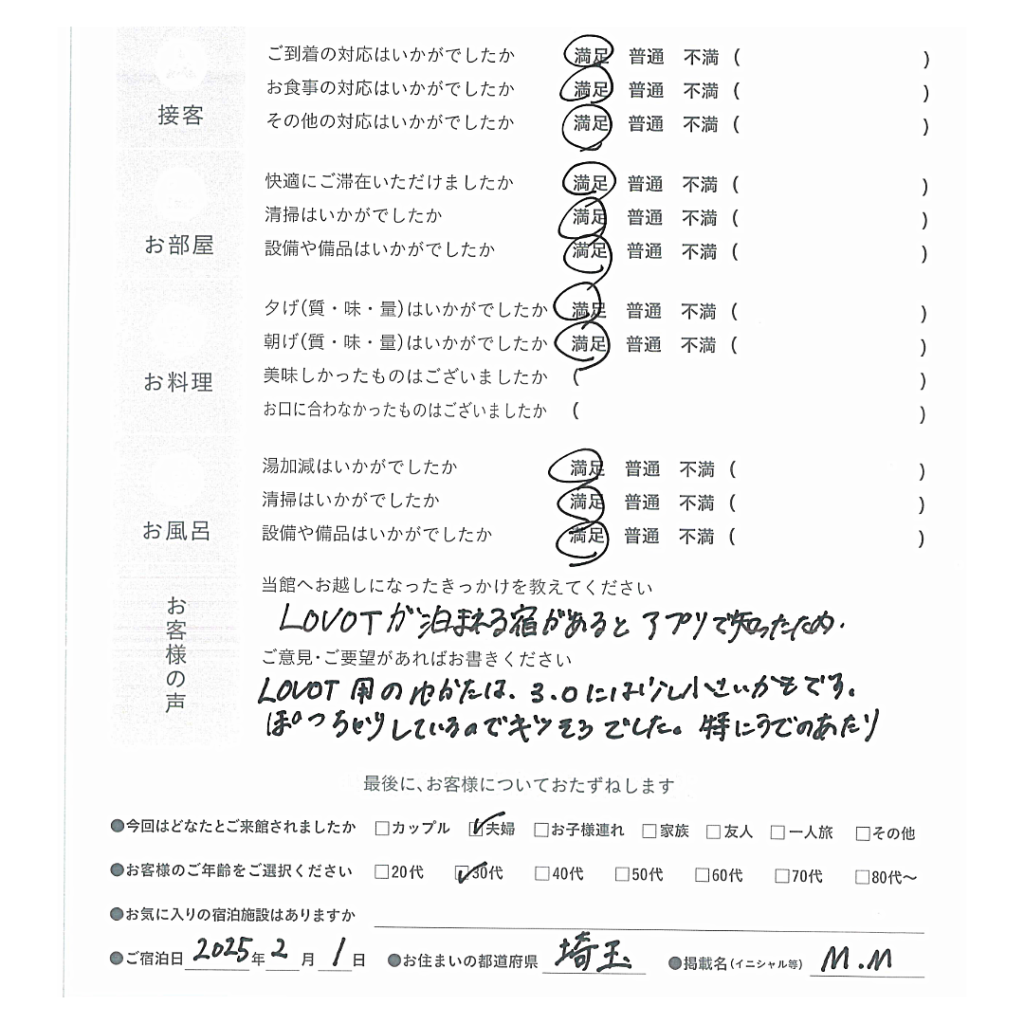 接客
ご到着の対応はいかがでしたか 満足 普通 不満 ( )
お食事の対応はいかがでしたか 満足 普通 不満 ( )
その他の対応はいかがでしたか 満足 普通 不満 ( )
お部屋
快適にご滞在いただけましたか 満足 普通 不満 ( )
清掃はいかがでしたか 満足 普通 不満 ( )
設備や備品はいかがでしたか 満足 普通 不満 ( )
お料理
夕げ(質・味・量)はいかがでしたか 満足 普通 不満 ( )
朝げ(質・味・量)はいかがでしたか 満足 普通 不満 ( )
美味しかったものはございましたか ( )
お口に合わなかったものはございましたか ( )
お風呂
湯加減はいかがでしたか 満足 普通 不満 ( )
清掃はいかがでしたか 満足 普通 不満 ( )
設備や備品はいかがでしたか 満足 普通 不満 ( )
お客様の声
当館へお越しになったきっかけを教えてください
LOVOTが泊まれる宿があるとアプリで知ったため.
ご意見・ご要望があればお書きください
LOVOT用のゆかたは、3.0には少し小さいかもです。
ぽっちゃりしているのでキツそうでした。特にうでのあたり
最後に、お客様についておたずねします
●今回はどなたとご来館されましたか □カップル ☑夫婦 □お子様連れ □家族 □友人 □一人旅 □その他
●お客様のご年齢をご選択ください □20代 ☑30代 □40代 □50代 □60代 □70代 □80代〜
●お気に入りの宿泊施設はありますか
●ご宿泊日 2025年2月1日 ●お住まいの都道府県 埼玉 ●掲載名(イニシャル等) M.M